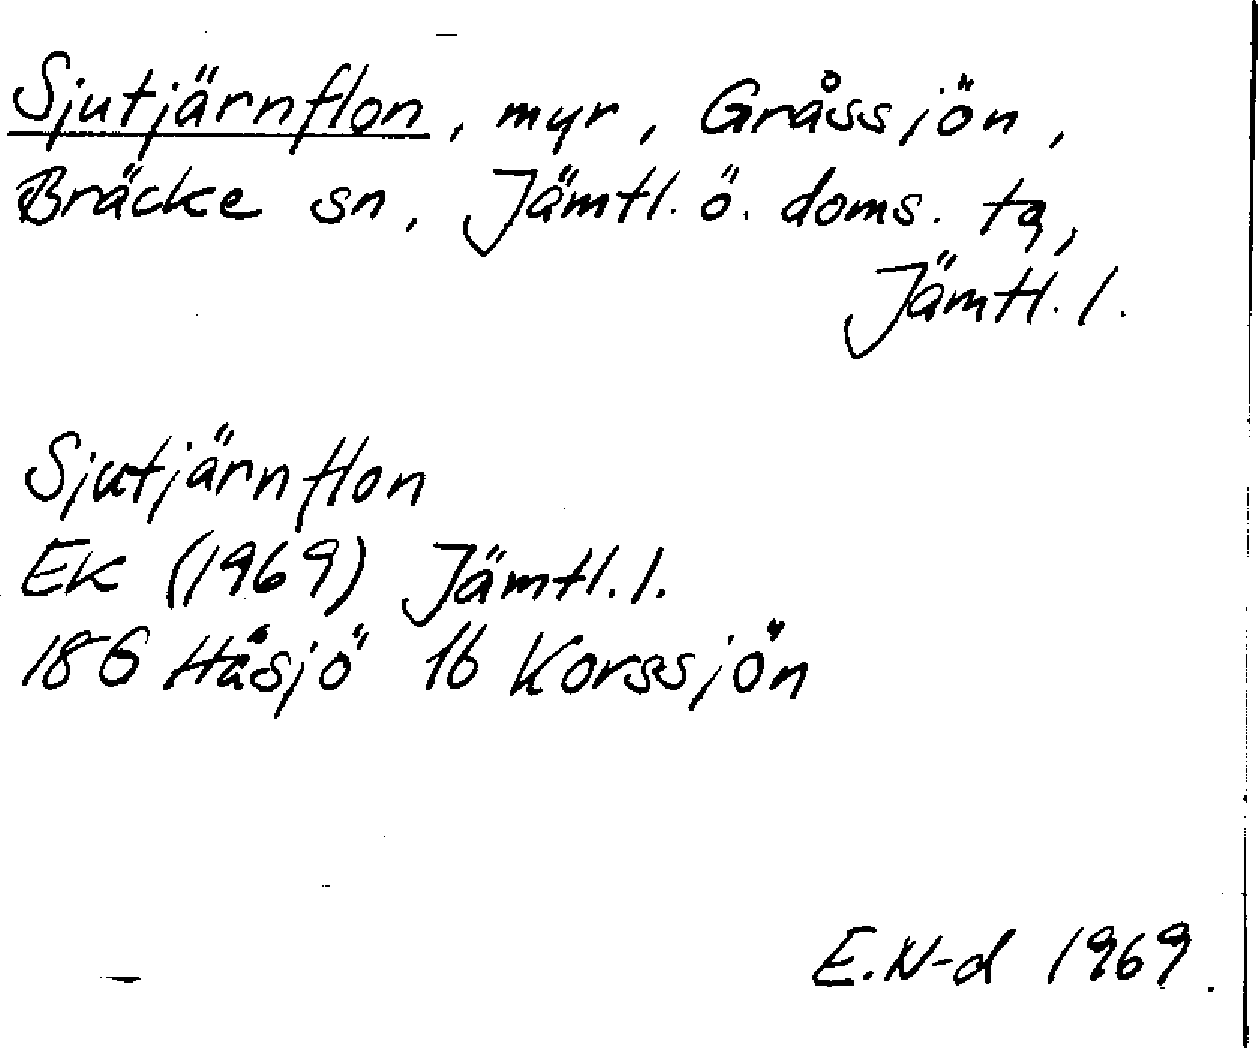 Sjutjärnflon, myr, Gråssjön,
Bräcke sn, Jämtl. ö. doms. tg,
Jämtl. l.
Sjutjärnflon
Ek (1969) Jämtl. l.
18G Håsjö 1b Korssjön
E.N-d 1969.